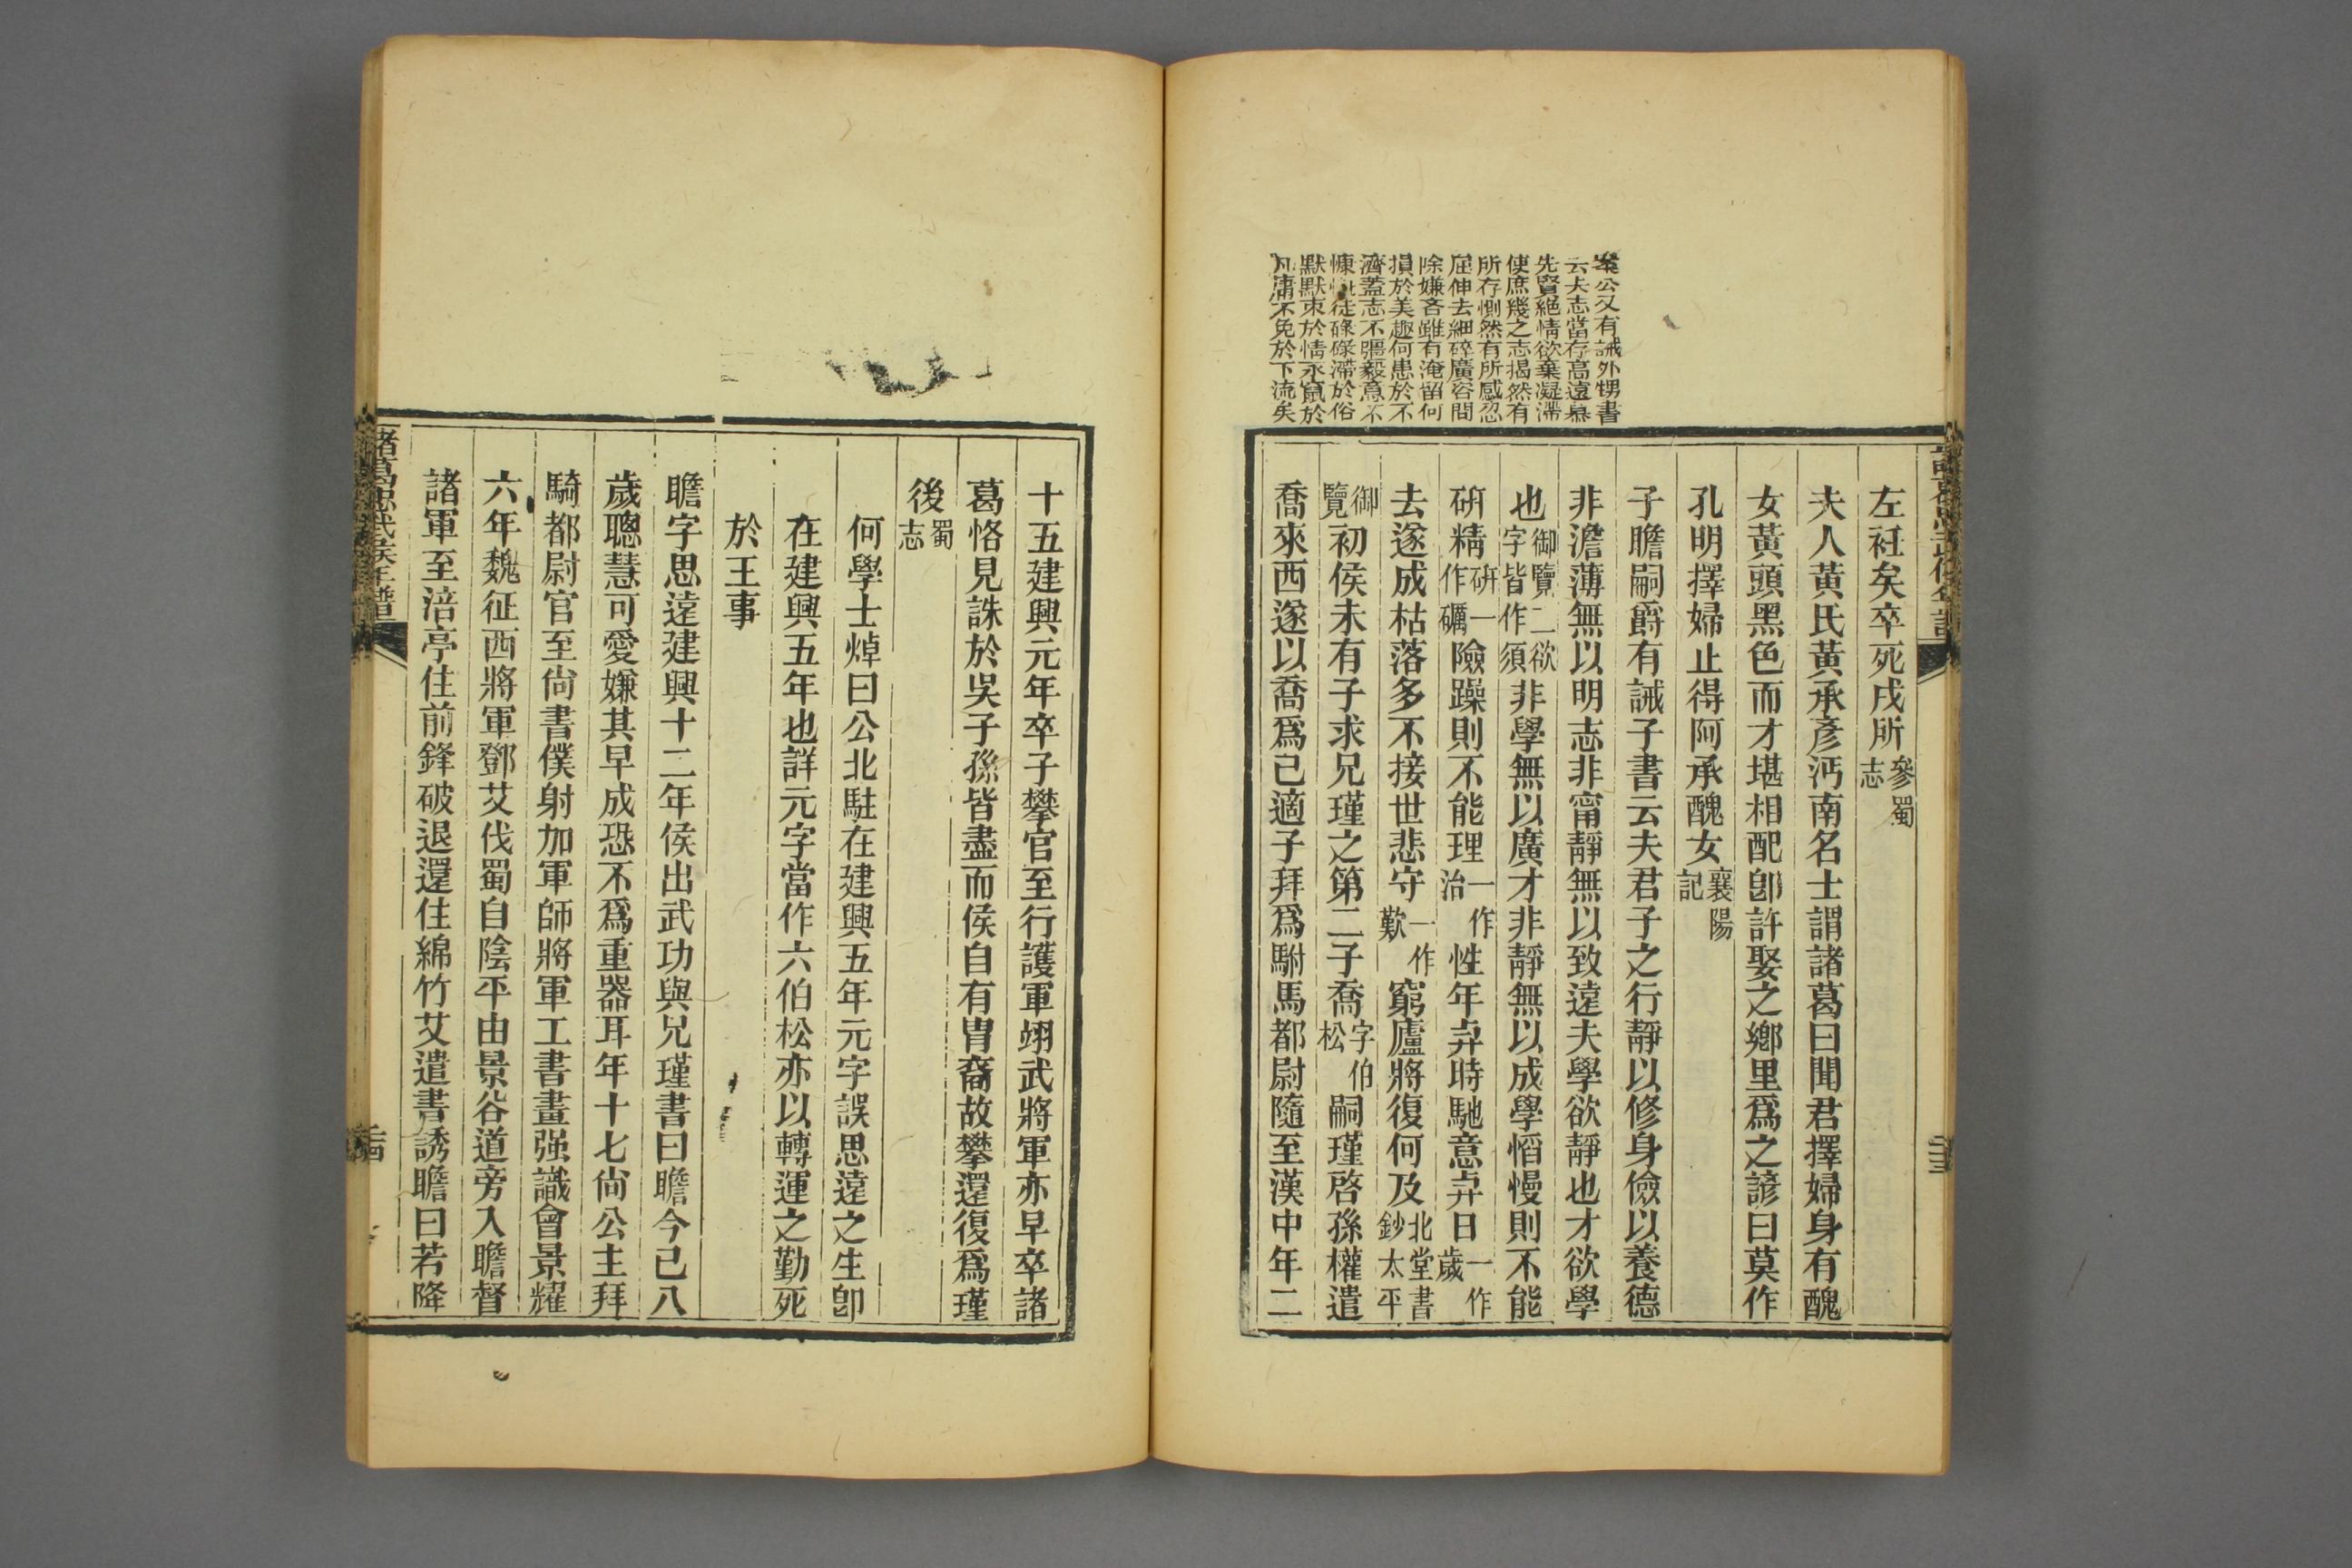 案公又有誡外甥書
云夫志當存高遠慕
先賢絕情欲棄凝滯
使庶幾之志揭然有
所存惻然有所感忍
屈伸去細碎廣容問
除嫌吝雖有淹留何
損於美趣何患於不
濟葢志不彊毅意不
慷慨徒碌碌滯於俗
默默束於情永竄於
凡庸不免於下流矣
左衽矣卒死戍所參蜀志
夫人黃氏黃承彥沔南名士謂諸葛曰聞君擇婦身有醜
女黃頭黑色而才堪相配卽許娶之鄉里爲之諺曰莫作
孔明擇婦止得阿承醜女襄陽記
子瞻嗣爵有誡子書云夫君子之行靜以修身儉以養德
非澹薄無以明志非甯靜無以致遠夫學欲靜也才欲學
也御覽二欲字皆作須非學無以廣才非靜無以成學慆慢則不能
硏精硏一作礪險躁則不能理一作治性年弃時馳意弃日一作歲
去遂成枯落多不接世悲守一作歎窮廬將復何及北堂書鈔太平
御覽初侯未有子求兄瑾之第二子喬字伯松嗣瑾啓孫權遣
喬來西遂以喬爲己適子拜爲駙馬都尉隨至漢中年二
十五建興元年卒子攀官至行護軍翊武將軍亦早卒諸
葛恪見誅於吳子孫皆盡而侯自有胄裔故攀還復爲瑾
後蜀志
何學士焯曰公北駐在建興五年元字誤思遠之生卽
在建興五年也詳元字當作六伯松亦以轉運之勤死
於王事
瞻字思遠建興十二年侯出武功與兄瑾書曰瞻今已八
歲聰慧可愛嫌其早成恐不爲重器耳年十七尙公主拜
騎都尉官至尙書僕射加軍師將軍工書畫强識會景耀
六年魏征西將軍鄧艾伐蜀自陰平由景谷道旁入瞻督
諸軍至涪亭住前鋒破退還住綿竹艾遣書誘瞻曰若降
諸葛忠武侯年譜